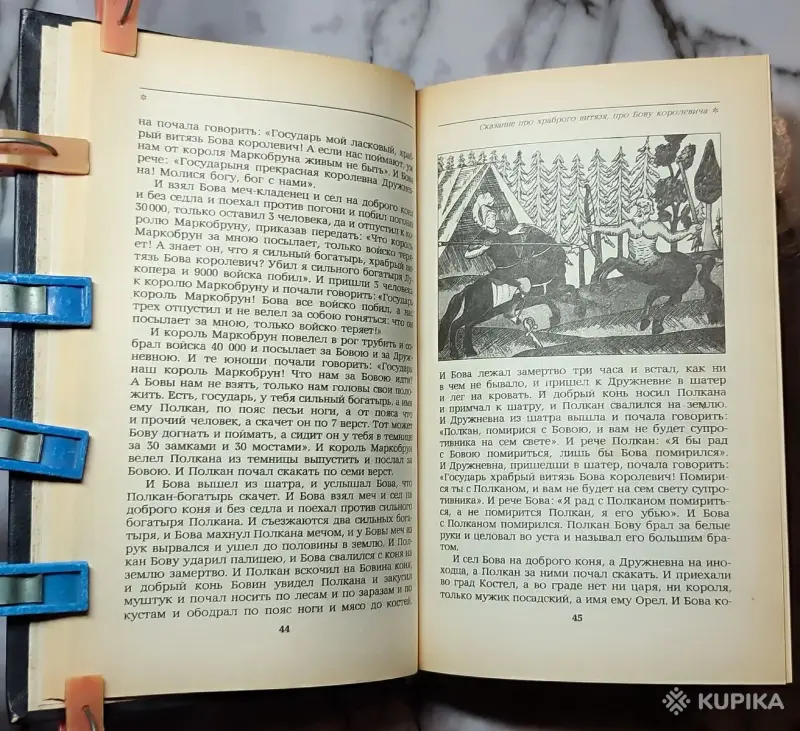 *
на почала говорить: «Государь мой ласковый, храб-
рый витязь Бова королевич! А если нас поймают, уж
нам от короля Маркобруна живым не быть». И Бова
рече: «Государыня прекрасная королевна Дружнев-
на! Молися богу, бог с нами».
И взял Бова меч-кладенец и сел на доброго коня
и без седла и поехал против погони и побил погони
30 000, только оставил 3 человека, да и отпустил к ко-
ролю Маркобруну, приказав передать: «Что король
Маркобрун за мною посылает, только войско теря-
ет! А знает он, что я сильный богатырь, храбрый ви-
тязь Бова королевич? Убил я сильного богатыря Лу-
копера и 9000 войска побил». И пришли 3 человека
к королю Маркобруну и почали говорить: «Государь
король Маркобрун! Бова все войско побил, а нас
трех отпустил и не велел за собою гоняться: что он
посылает за мною, только войско теряет!»
И король Маркобрун повелел в рог трубить и со-
брал войска 40 000 и посылает за Бовою и за Друж-
невною. И те юноши почали говорить: «Государь
наш король Маркобрун! Что нам за Бовою идти?
А Бовы нам не взять, только нам головы свои поло-
жить. Есть, государь, у тебя сильный богатырь, а имя
ему Полкан, по пояс песьи ноги, а от пояса что
и прочий человек, а скачет он по 7 верст. Тот может
Бову догнать и поймать, а сидит он у тебя в темнице
за 30 замками и 30 мостами». И король Маркобрун
велел Полкана из темницы выпустить и послал за
Бовою. И Полкан почал скакать по семи верст.
И Бова вышел из шатра, и услышал Бова, что
Полкан-богатырь скачет. И Бова взял меч и сел на
доброго коня и без седла и поехал против сильного
богатыря Полкана. И съезжаются два сильных бога-
тыря, и Бова махнул Полкана мечом, и у Бовы меч из
рук вырвался и ушел до половины в землю. И Пол-
кан Бову ударил палицею, и Бова свалился с коня на
землю замертво. И Полкан вскочил на Бовина коня,
и добрый конь Бовин увидел Полкана и закусил
муштук и почал носить по лесам и по заразам и по
кустам и ободрал по пояс ноги и мясо до костей.
44
Сказание про храброго витязя, про Бову королевича *
И Бова лежал замертво три часа и встал, как ни
в чем не бывало, и пришел к Дружневне в шатер
и лег на кровать. И добрый конь носил Полкана
и примчал к шатру, и Полкан свалился на землю.
И Дружневна из шатра вышла и почала говорить:
«Полкан, помирися с Бовою, и вам не будет супро-
тивника на сем свете». И рече Полкан: «Я бы рад
с Бовою помириться, лишь бы Бова помирился».
И Дружневна, пришедши в шатер, почала говорить:
«Государь храбрый витязь Бова королевич! Помири-
ся ты с Полканом, и вам не будет на сем свету супро-
тивника». И рече Бова: «Я рад с Полканом помирить-
ся, а не помирится Полкан, я его убью». И Бова
с Полканом помирился. Полкан Бову брал за белые
руки и целовал во уста и называл его большим бра-
том.
И сел Бова на доброго коня, а Дружневна на ино-
ходца, а Полкан за ними почал скакать. И приехали
во град Костел, а во граде нет ни царя, ни короля,
только мужик посадский, а имя ему Орел. И Бова ко-
45
KUPIKA